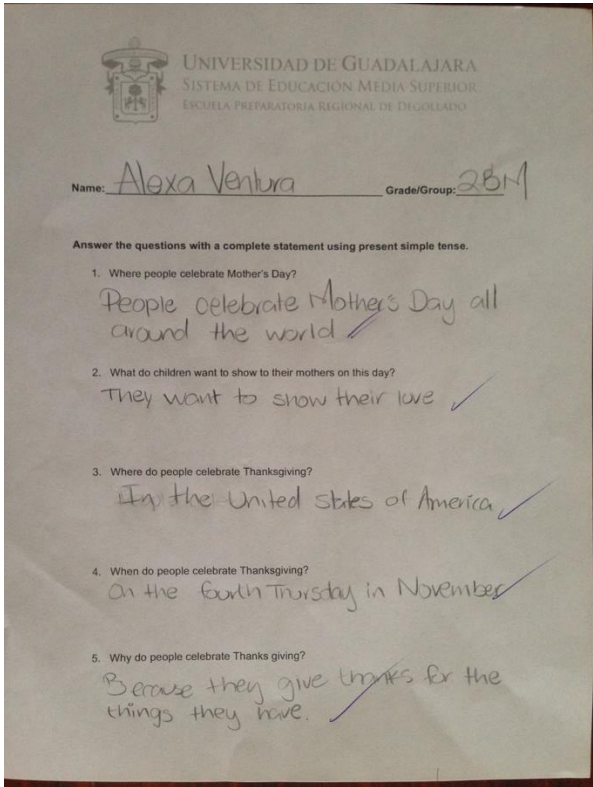 UNIVERSIDAD DE GUADALAJARA
SISTEMA DE EDUCACIÓN MEDIA SUPERIOR
ESCUELA PREPARATORIA REGIONAL DE DEGOLLADO
Name: Alexa Ventura Grade/Group: 2BM
Answer the questions with a complete statement using present simple tense.
1. Where people celebrate Mother's Day?
People celebrate Mother's Day all
around the world
2. What do children want to show to their mothers on this day?
They want to show their love
3. Where do people celebrate Thanksgiving?
In the United States of America
4. When do people celebrate Thanksgiving?
On the fourth Thursday in November
5. Why do people celebrate Thanks giving?
Because they give thanks for the
things they have.